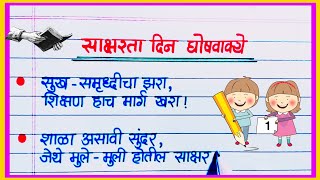 साक्षरता दिन घोषवाक्ये
सुख-समृध्दीचा झरा,
शिक्षण हाच मार्ग खरा!
शाळा असावी सुंदर,
जेथे मुले-मुली होतील साक्षर
1